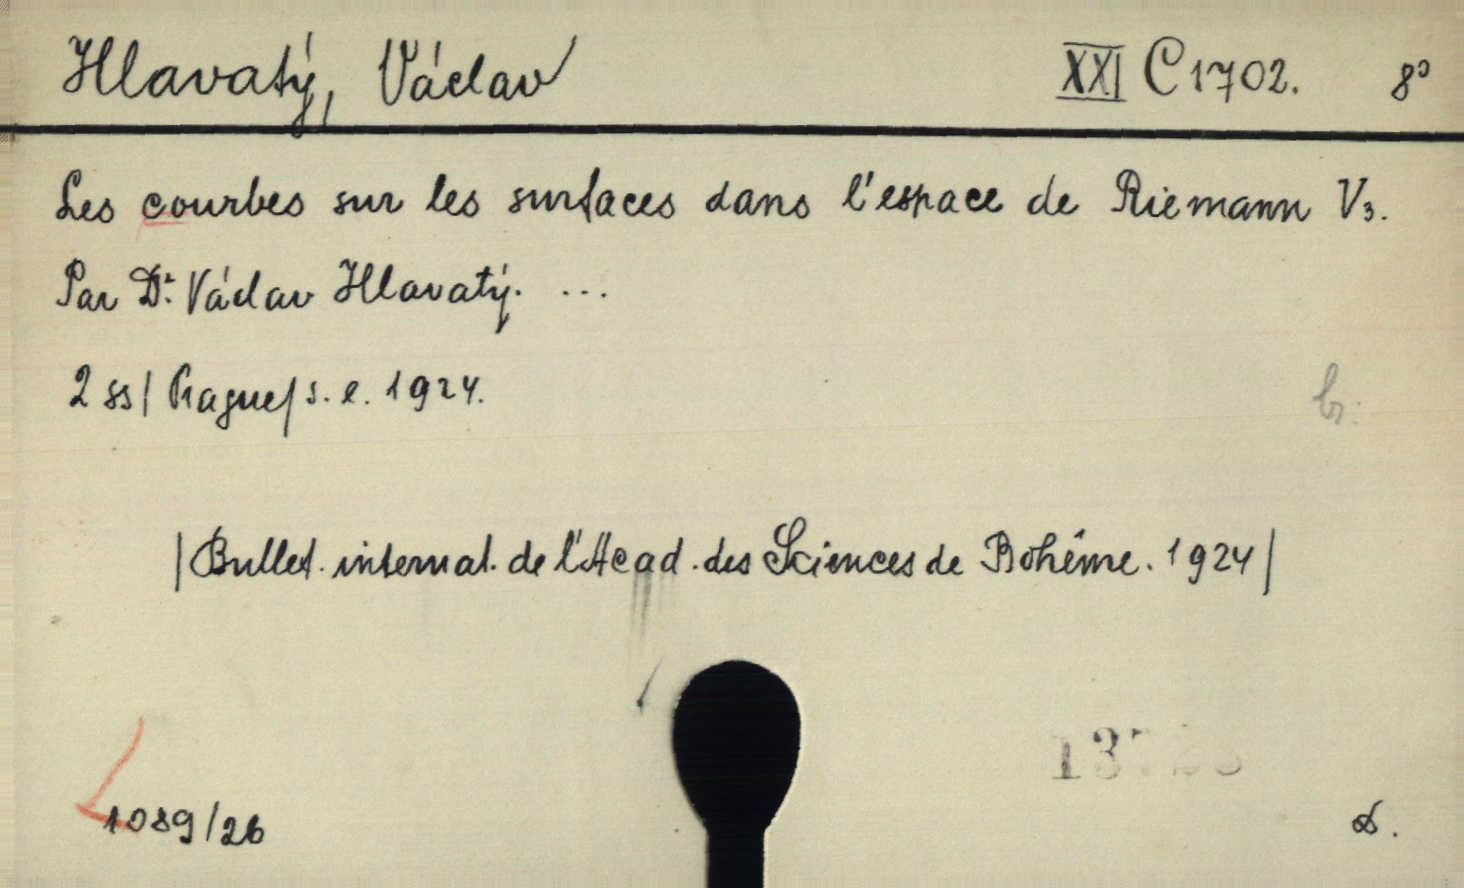 Hlavatý, Václav XXI C 1702. 8º
Les courbes sur les surfaces dans l'espace de Riemann V3.
Par Dr. Václav Hlavatý. ...
2 ss | Prague/ s. e. 1924.
br.
|Bullet. internat. de l'Acad. des Sciences de Bohême. 1924|
1089/26